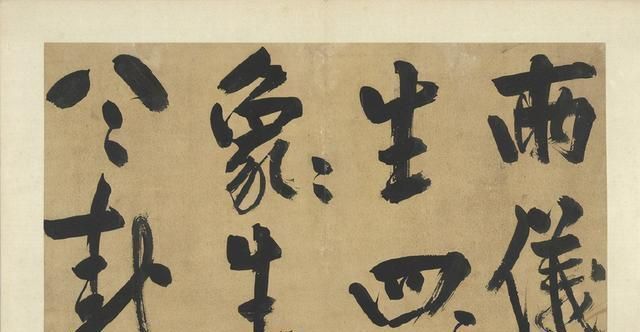 兩儀
生四〻
象〻生
八〻卦